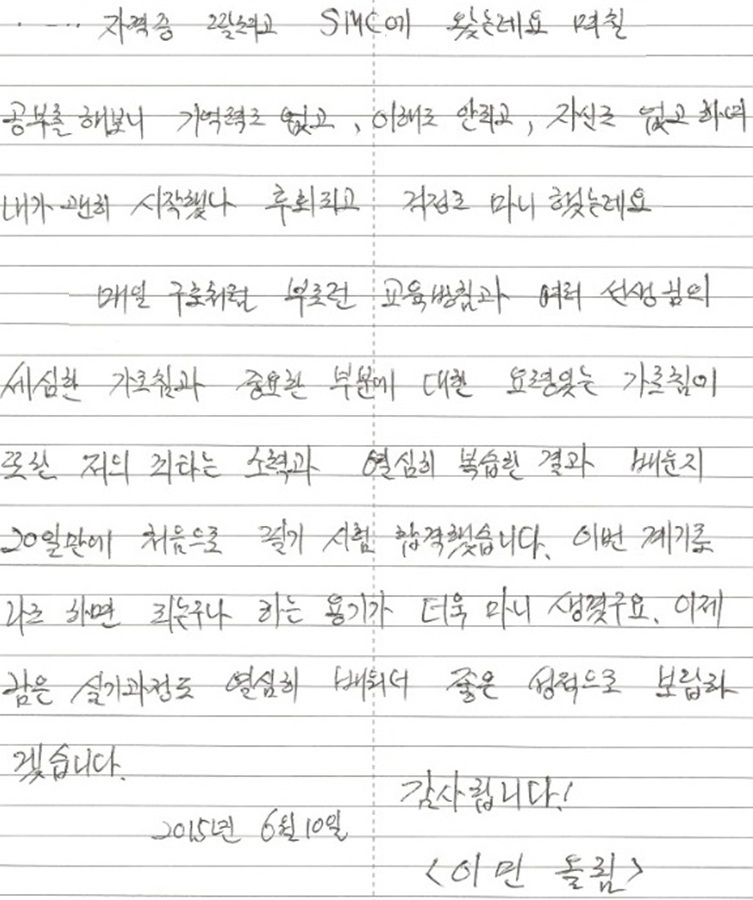 ..... 자격증 2갈라고 SIMC에 왔는데요 며칠
공부를 해보니 기억력도 없고, 이해도 안되고, 자신도 없고 하며
내가 괜히 시작했나 후회되고 걱정도 마니 했는데요
매일 구호처럼 부르던 교육방침과 여러 선생님의
세심한 가르침과 중요한 부분에 대한 요령있는 가르침이
또한 저의 피타는 노력과 열심히 복습한 결과 배운지
20일만에 처음으로 필기 시험 합격했습니다. 이번 계기로
나도 하면 되는구나 하는 용기가 더욱 마니 생겼구요. 이제
남은 실기과정도 열심히 배워서 좋은 성적으로 보답하
겠습니다.
감사합니다!
2015년 6월 10일
<이 민 올림>